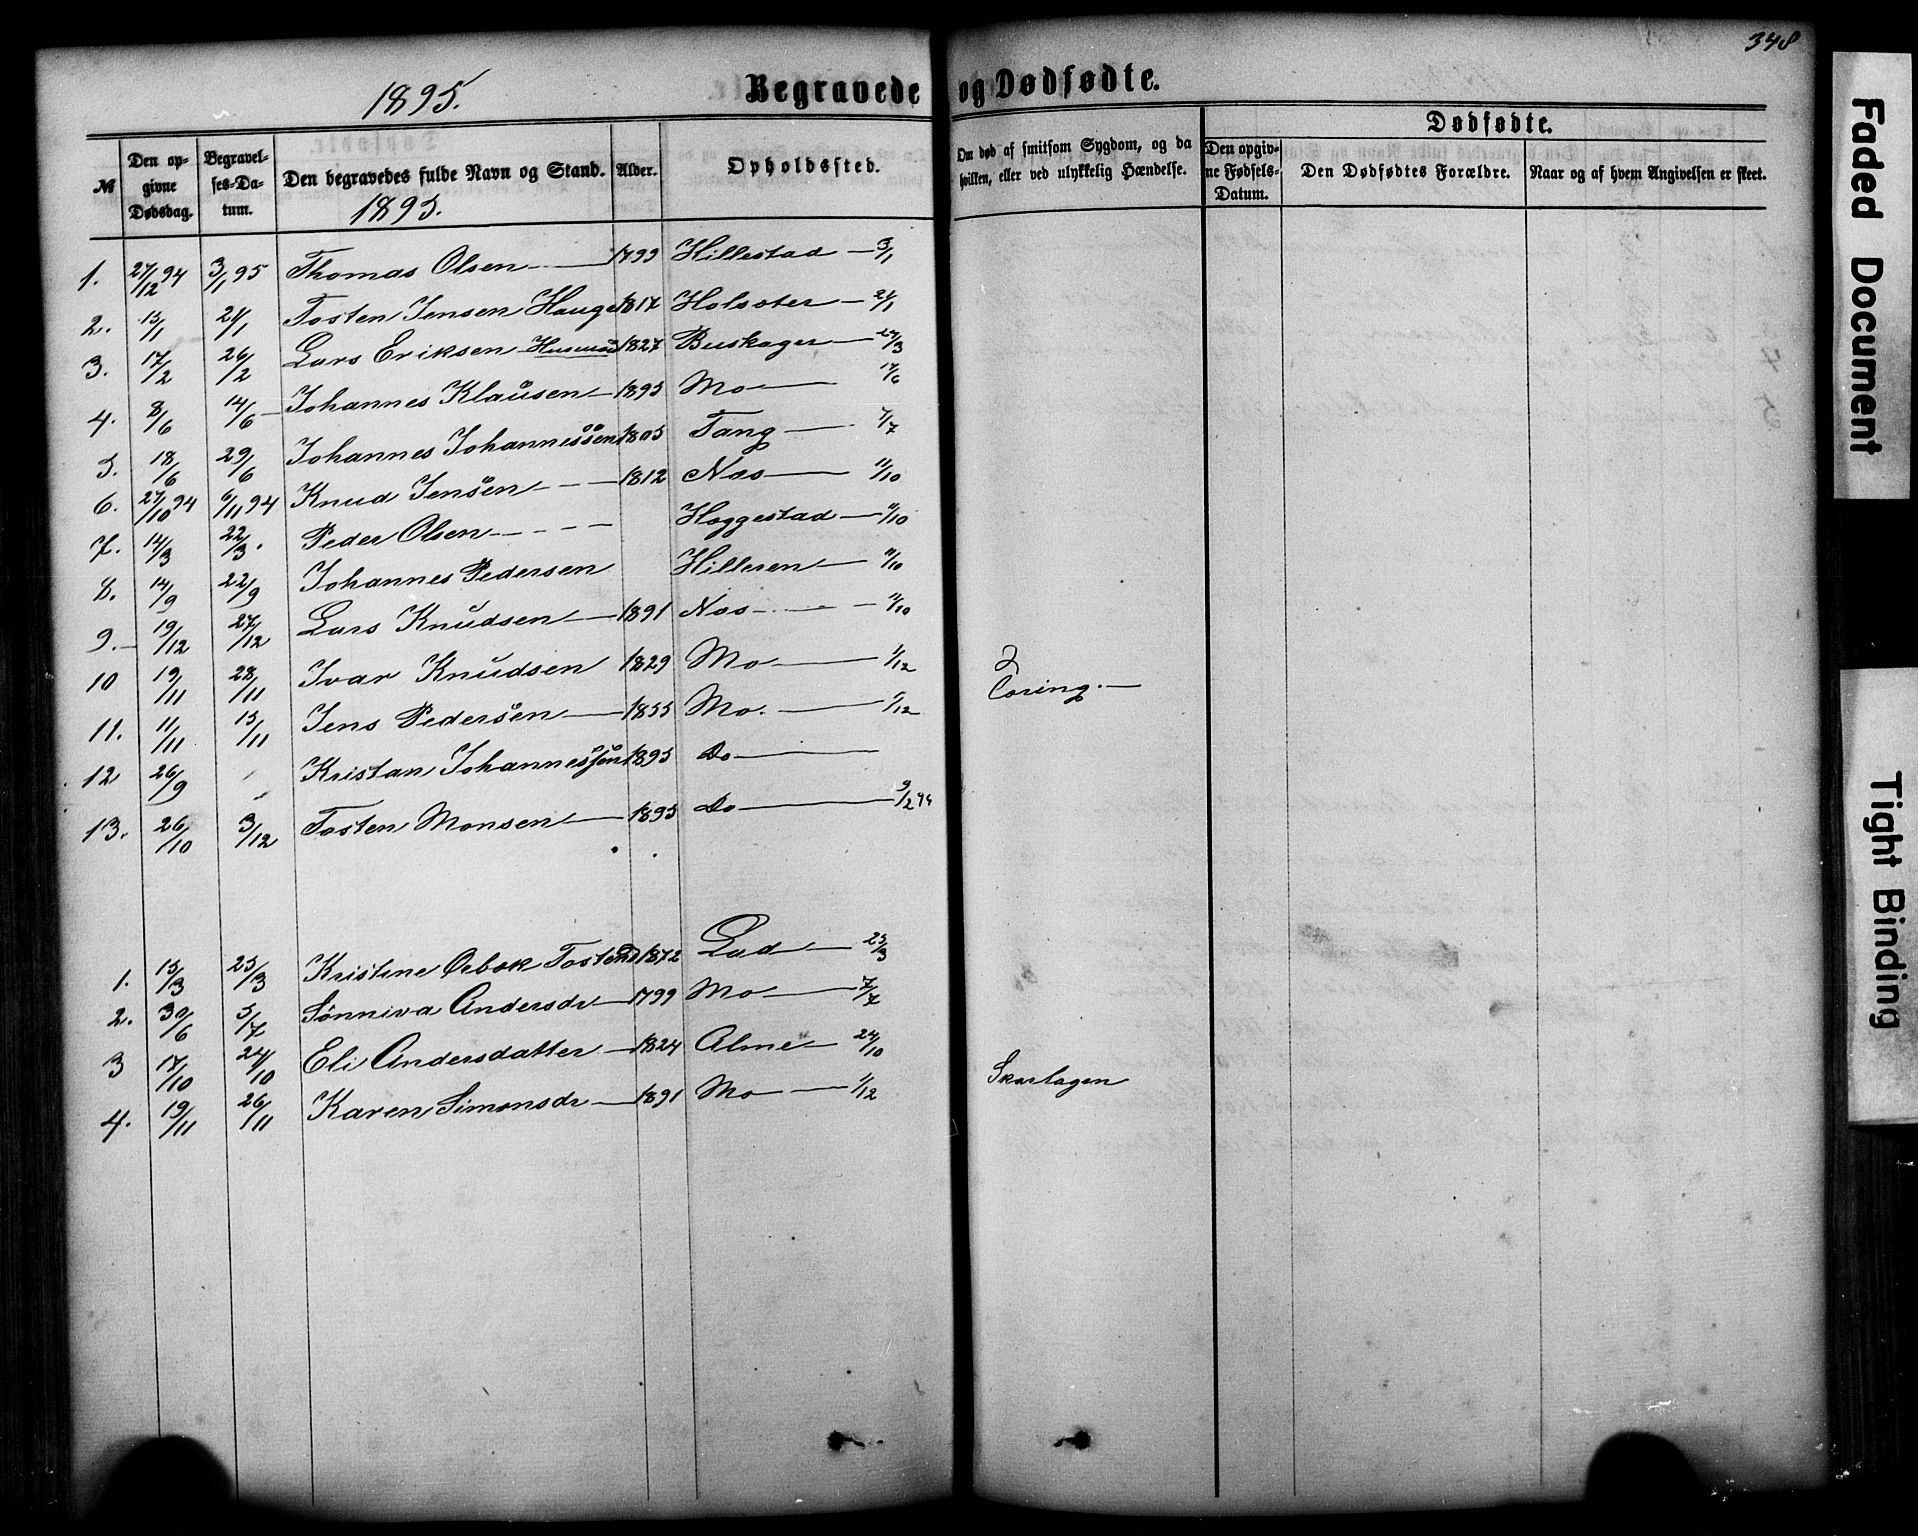 348
1895.
Begravede og Dødfødte.
№ | Den opgivne Dødsdag. | Begravelses-Datum. | Den begravedes fulde Navn og Stand. | Alder. | Opholdssted. | Om død af smitsom Sygdom, og da hvilken, eller ved ulykkelig Hændelse. | Dødfødte. | Den opgivne Fødsels-Datum. | Den Dødfødtes Forældre. | Naar og af hvem Angivelsen er skeet.
1895.
1. 27/12 94 3/1 95 Thomas Olsen 1799 Hillestad 3/1
2. 15/1 21/1 Tosten Jensen Hauge 1817 Holsæter 21/1
3. 17/2 26/2 Lars Eriksen Husmd 1827 Buskager 24/3
4. 8/6 14/6 Johannes Klausen 1895 Mo 17/6
5. 18/6 29/6 Johannes Johannessen 1805 Tang 7/7
6. 27/10 94 6/11 94 Knud Jensen 1812 Næs 11/10
7. 14/3 22/3. Peder Olsen Heggestad 11/10
8. 14/9 22/9 Johannes Pedersen Hilleren 11/10
9. 19/12 27/12 Lars Knudsen 1891 Næs 11/10
10 19/11 28/11 Ivar Knudsen 1829 Mo 1/12
11. 11/11 15/11 Jens Pedersen 1855 Mo. 1/12 Tæring.
12 26/9 Kristan Johannessen 1895 Do
13. 26/10 3/12 Tosten Monsen 1895 Do
1. 15/3 25/3 Kristine 1872 Lad 25/3
2. 30/6 5/7 Sønniva Andersdr 1799 Mo 7/7
3 17/10 24/10 Eli Andersdatter 1824 Alme 24/10
4. 19/11 26/11 Karen Simonsdr 1891 Mo 1/12 Skarlagen
Faded Document
Tight Binding